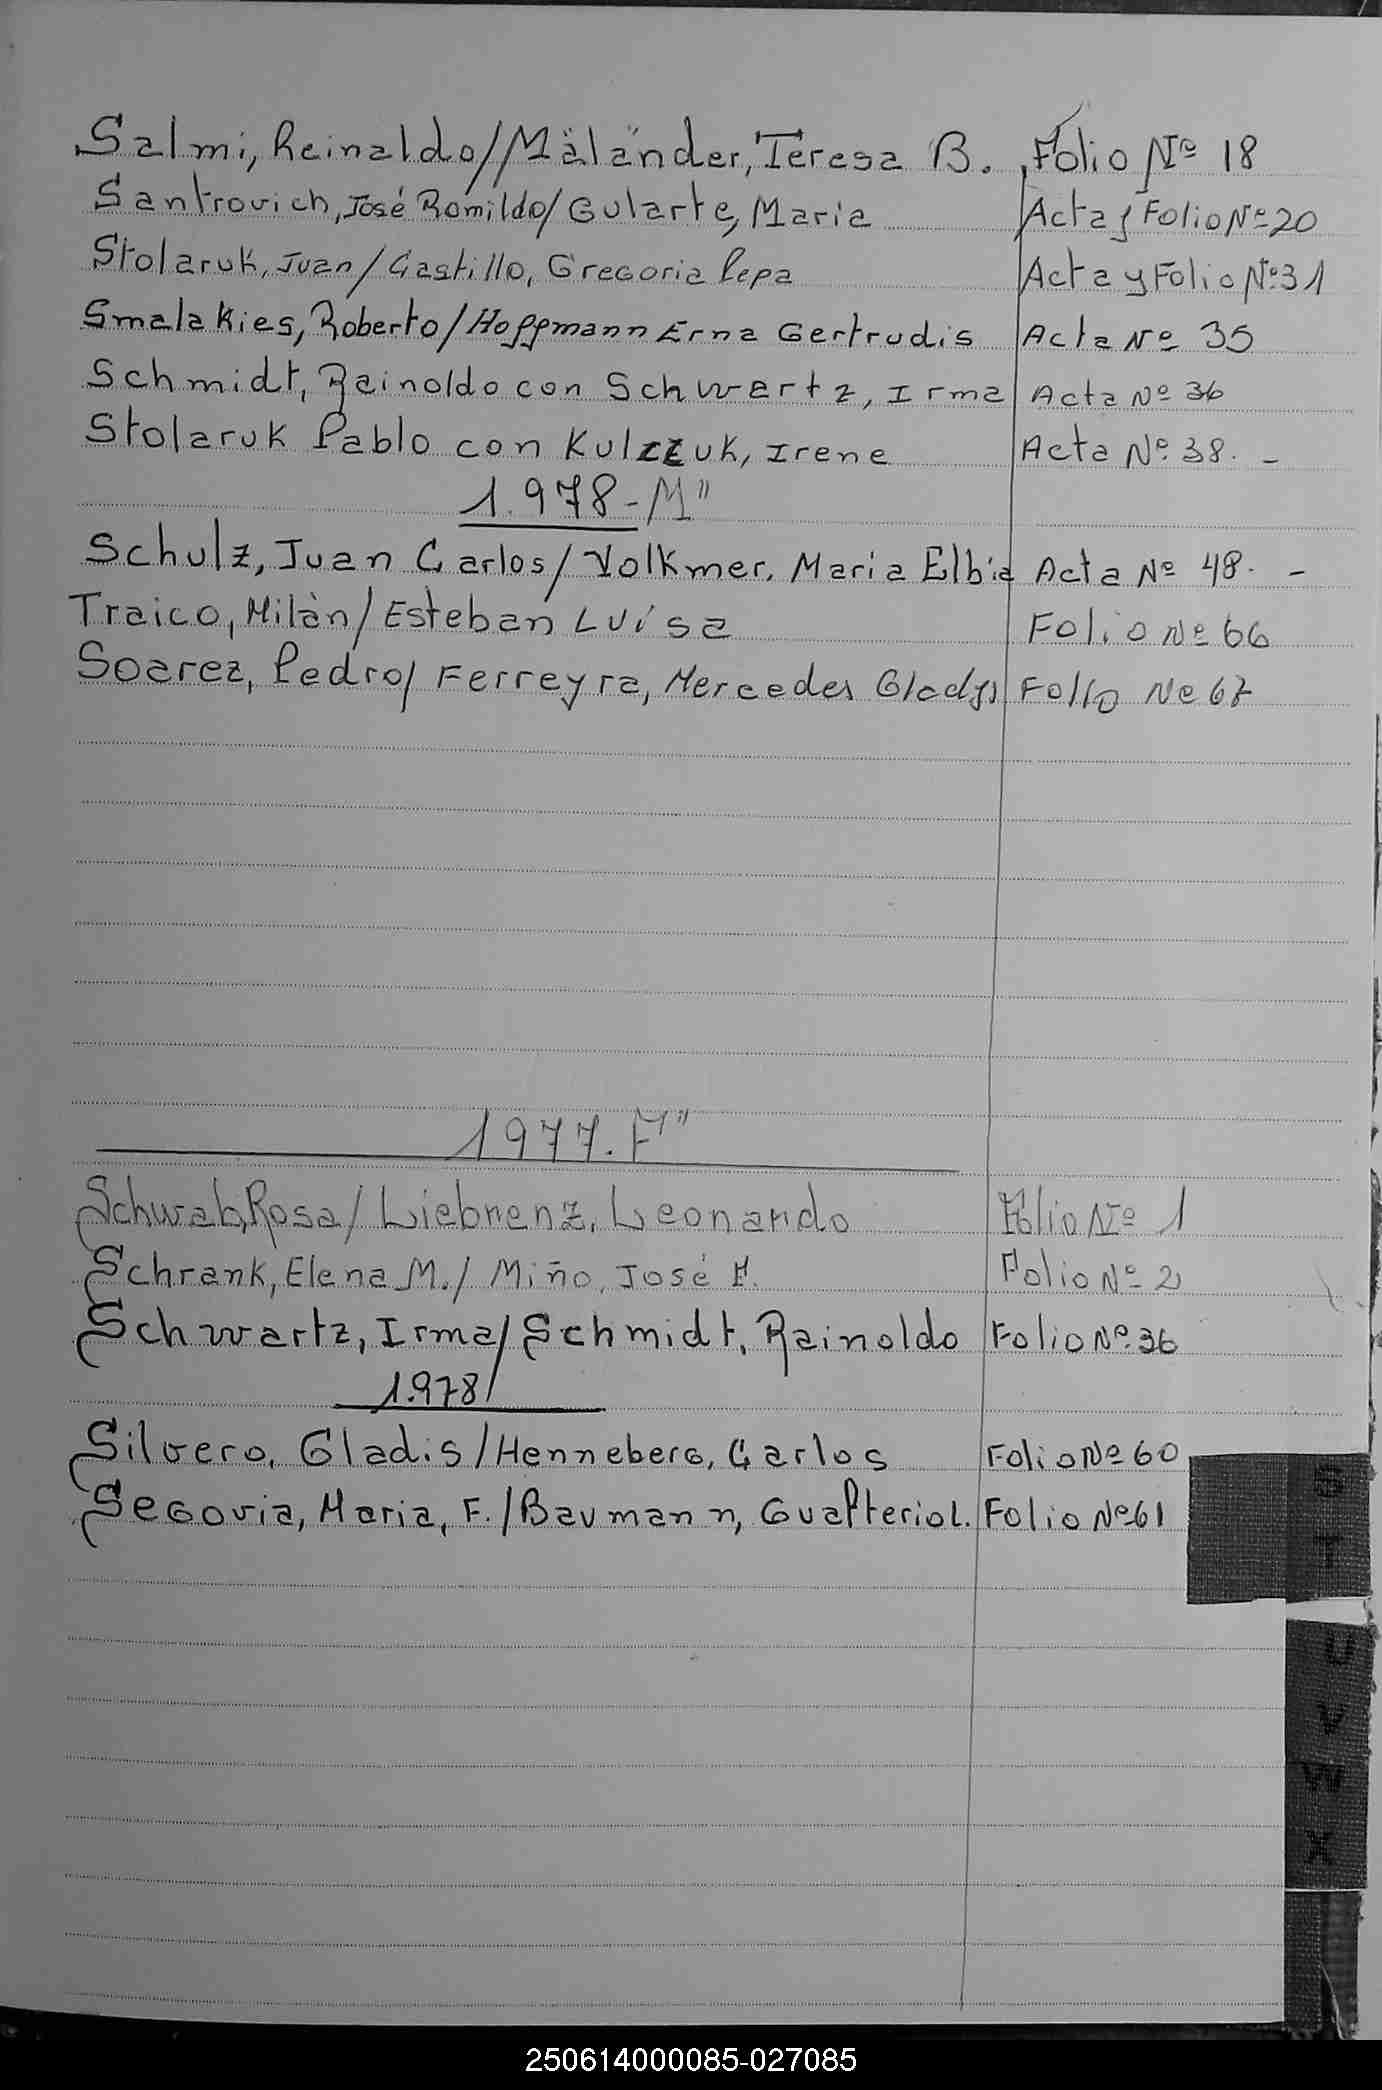 Salmi, Reinaldo//Mäländer, Teresa B. Folio Nº 18
Santrovich, José Romildo/Gularte, Maria Acta y Folio Nº 20
Stolaruk, Juan/Castillo, Gregoria Pepa Acta y Folio Nº 31
Smalakies, Roberto/Hoffmann Erna Gertrudis Acta Nº 35
Schmidt, Reinoldo con Schwartz, Irma Acta Nº 36
Stolaruk Pablo con Kulczuk, Irene Acta Nº 38. -
1.978-M"
Schulz, Juan Carlos/Volkmer, Maria Elbia Acta Nº 48. -
Traico, Milàn/Esteban Luísa Folio Nº 66
Soarez, Pedro/Ferreyra, Mercedes Gladys Folio Nº 67
1977.F"
Schwab, Rosa/Liebrenz, Leonardo Folio Nº 1
Schrank, Elena M./Miño, José H. Folio Nº 2
Schwartz, Irma/Schmidt, Reinoldo Folio Nº 36
1.978/
Silvero, Gladis/Henneberg, Carlos Folio Nº 60
Segovia, Maria, F./Baumann, Gualterio L. Folio Nº 61
S
T
U
V
W
X
250614000085-027085